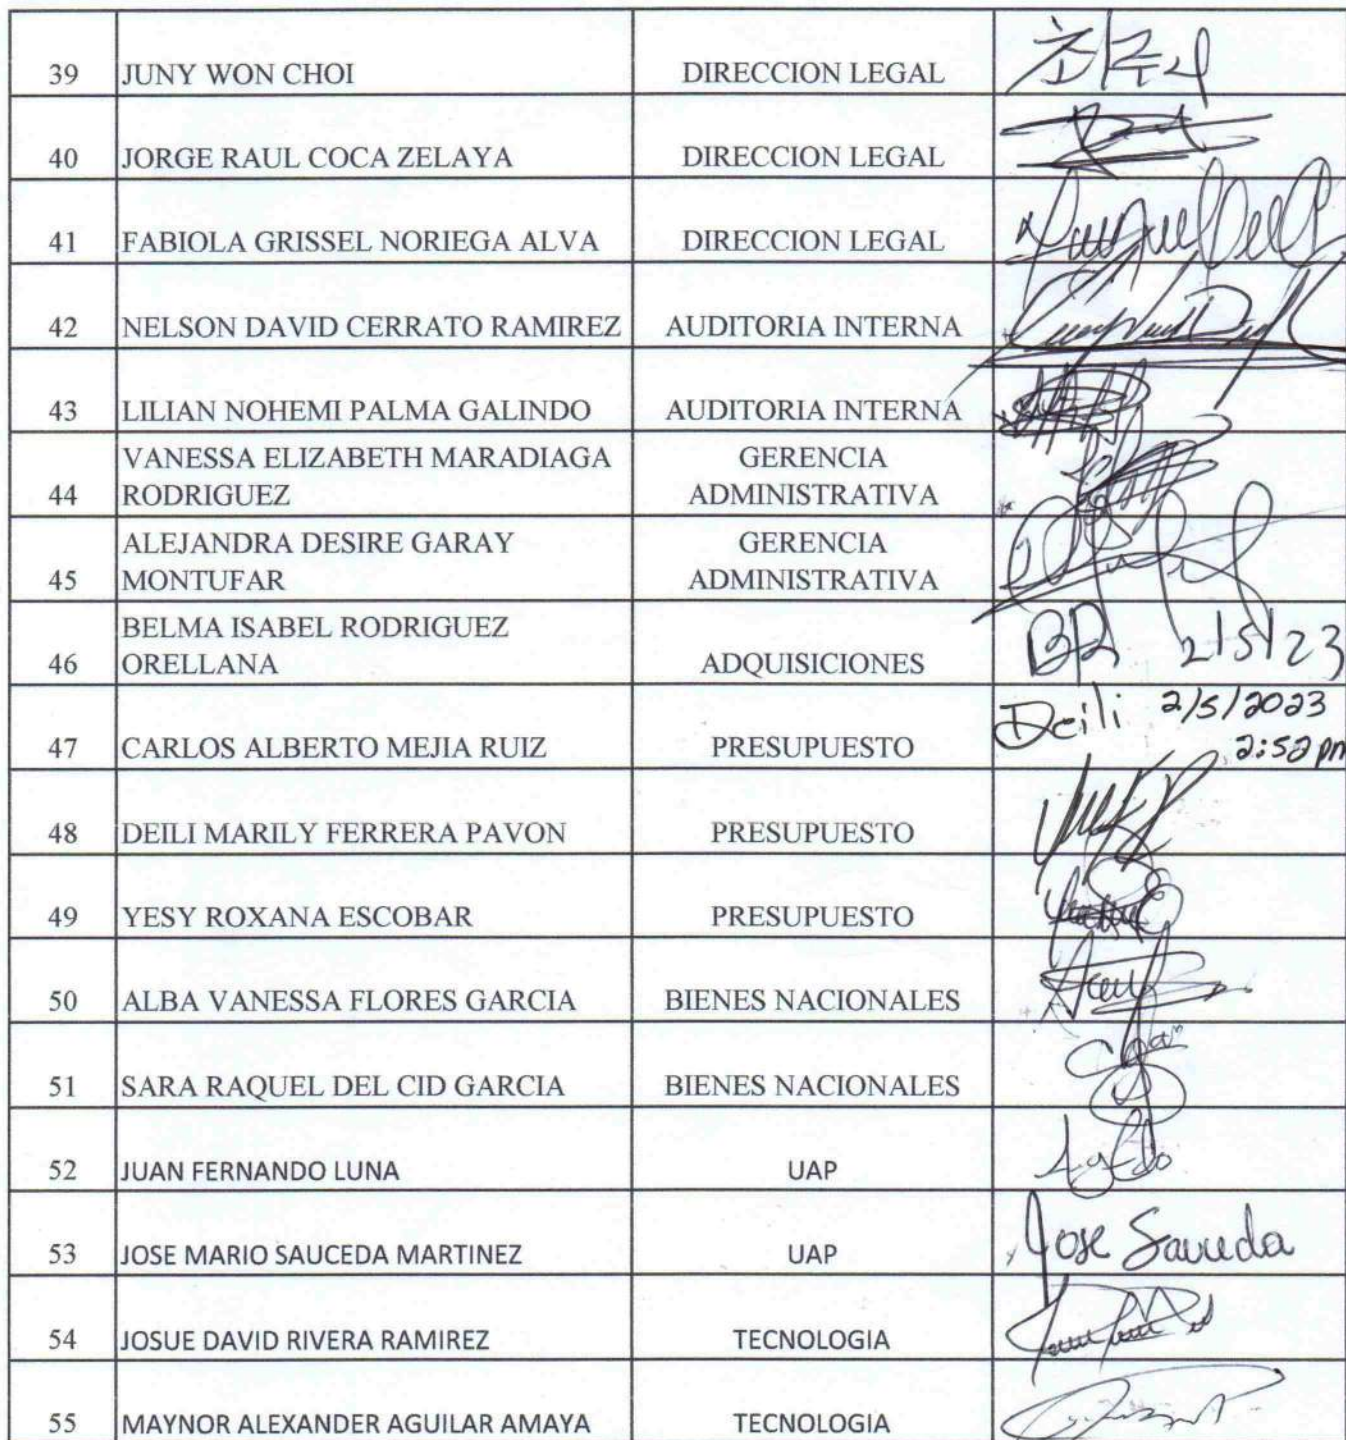 39 JUNY WON CHOI DIRECCION LEGAL
40 JORGE RAUL COCA ZELAYA DIRECCION LEGAL
41 FABIOLA GRISSEL NORIEGA ALVA DIRECCION LEGAL
42 NELSON DAVID CERRATO RAMIREZ AUDITORIA INTERNA
43 LILIAN NOHEMI PALMA GALINDO AUDITORIA INTERNA
VANESSA ELIZABETH MARADIAGA GERENCIA
44 RODRIGUEZ ADMINISTRATIVA
ALEJANDRA DESIRE GARAY GERENCIA
45 MONTUFAR ADMINISTRATIVA
BELMA ISABEL RODRIGUEZ
46 ORELLANA ADQUISICIONES BR 2/5/23
Deili 2/5/2023
47 CARLOS ALBERTO MEJIA RUIZ PRESUPUESTO 2:52 pm
48 DEILI MARILY FERRERA PAVON PRESUPUESTO
49 YESY ROXANA ESCOBAR PRESUPUESTO
50 ALBA VANESSA FLORES GARCIA BIENES NACIONALES
51 SARA RAQUEL DEL CID GARCIA BIENES NACIONALES
52 JUAN FERNANDO LUNA UAP
53 JOSE MARIO SAUCEDA MARTINEZ UAP Jose Sauceda
54 JOSUE DAVID RIVERA RAMIREZ TECNOLOGIA
55 MAYNOR ALEXANDER AGUILAR AMAYA TECNOLOGIA